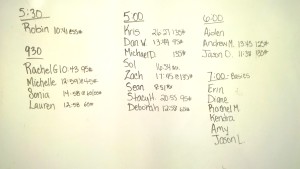 5:30
Robin 10:41 65#
930
Rachel G 10:43 95#
Michelle
Sonia
Lauren 12:58 65
5:00
Kris 26:27 135#
Dan W. 13:49 95#
Michael D. 135#
Sol
Zach 17:45
Sean
Stacy H. 20:53 95#
Deborah 12:58
6:00
Aiden
Andrew M. 13:43 125#
Jason D. 11:38 135#
7:00 - Basics
Erin
Diane
Rachel M.
Kendra
Amy
Jason L